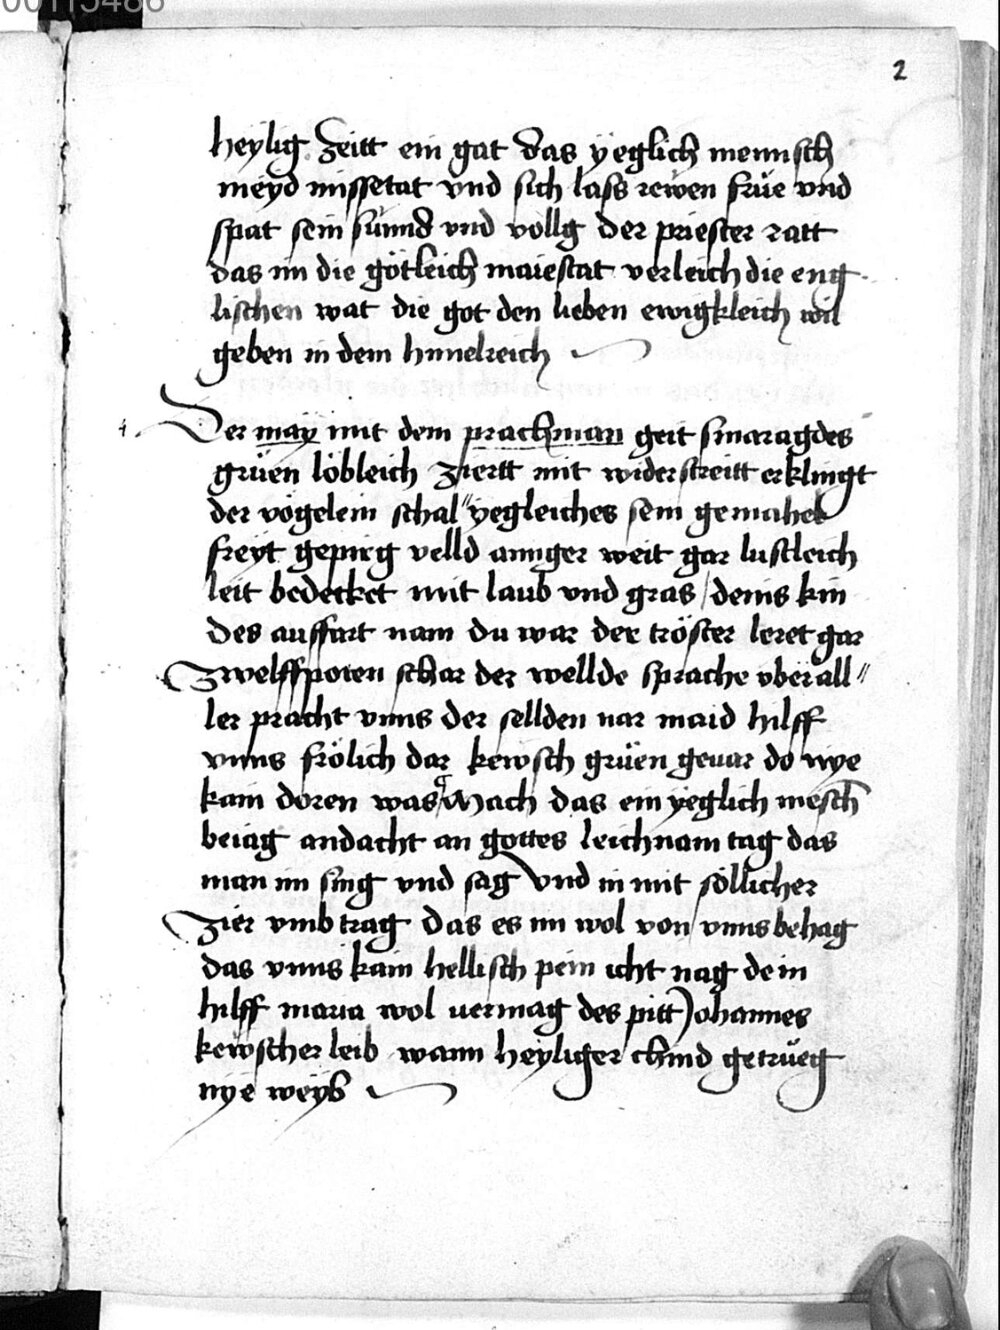 00115486
2
heylig zeitt ein gat das yeglich mennsch
meyd missetat vnd sich lass rewen frue vnd
spat sein sünnd vnd vollg der priester ratt
das im die götleich maiestat verleich die eng
lischen wat die got den lieben ewigkleich wil
geben in dem himelreich
4 Der may mit dem prachman geit smaragdes
grüen löbleich ziertt mit widerstreitt erklingt
der vögelein schal yegleiches sein gemahel
freyt gepirg velld anger weit gar lustleich
leit bedecket mit laub vnd gras / deins kin
des auffart nam du war der tröster leret gar
zwelffpoten schar der wellde sprache vber all
ler pracht vnns der sellden nar maid hilff
vnns frölich dar kewsch grüen geuar do nye
kain doren was Mach das ein yeglich mesch
beiag andacht an gottes leichnam tag das
man im sing vnd sag vnd in mit söllicher
zier vmb trag das es im wol von vnns behag
das vnns kain hellisch pein icht nag dein
hilff maria wol uermag des pitt Johannes
kewscher leib wann heyliger chind getrüeg
nye weyb